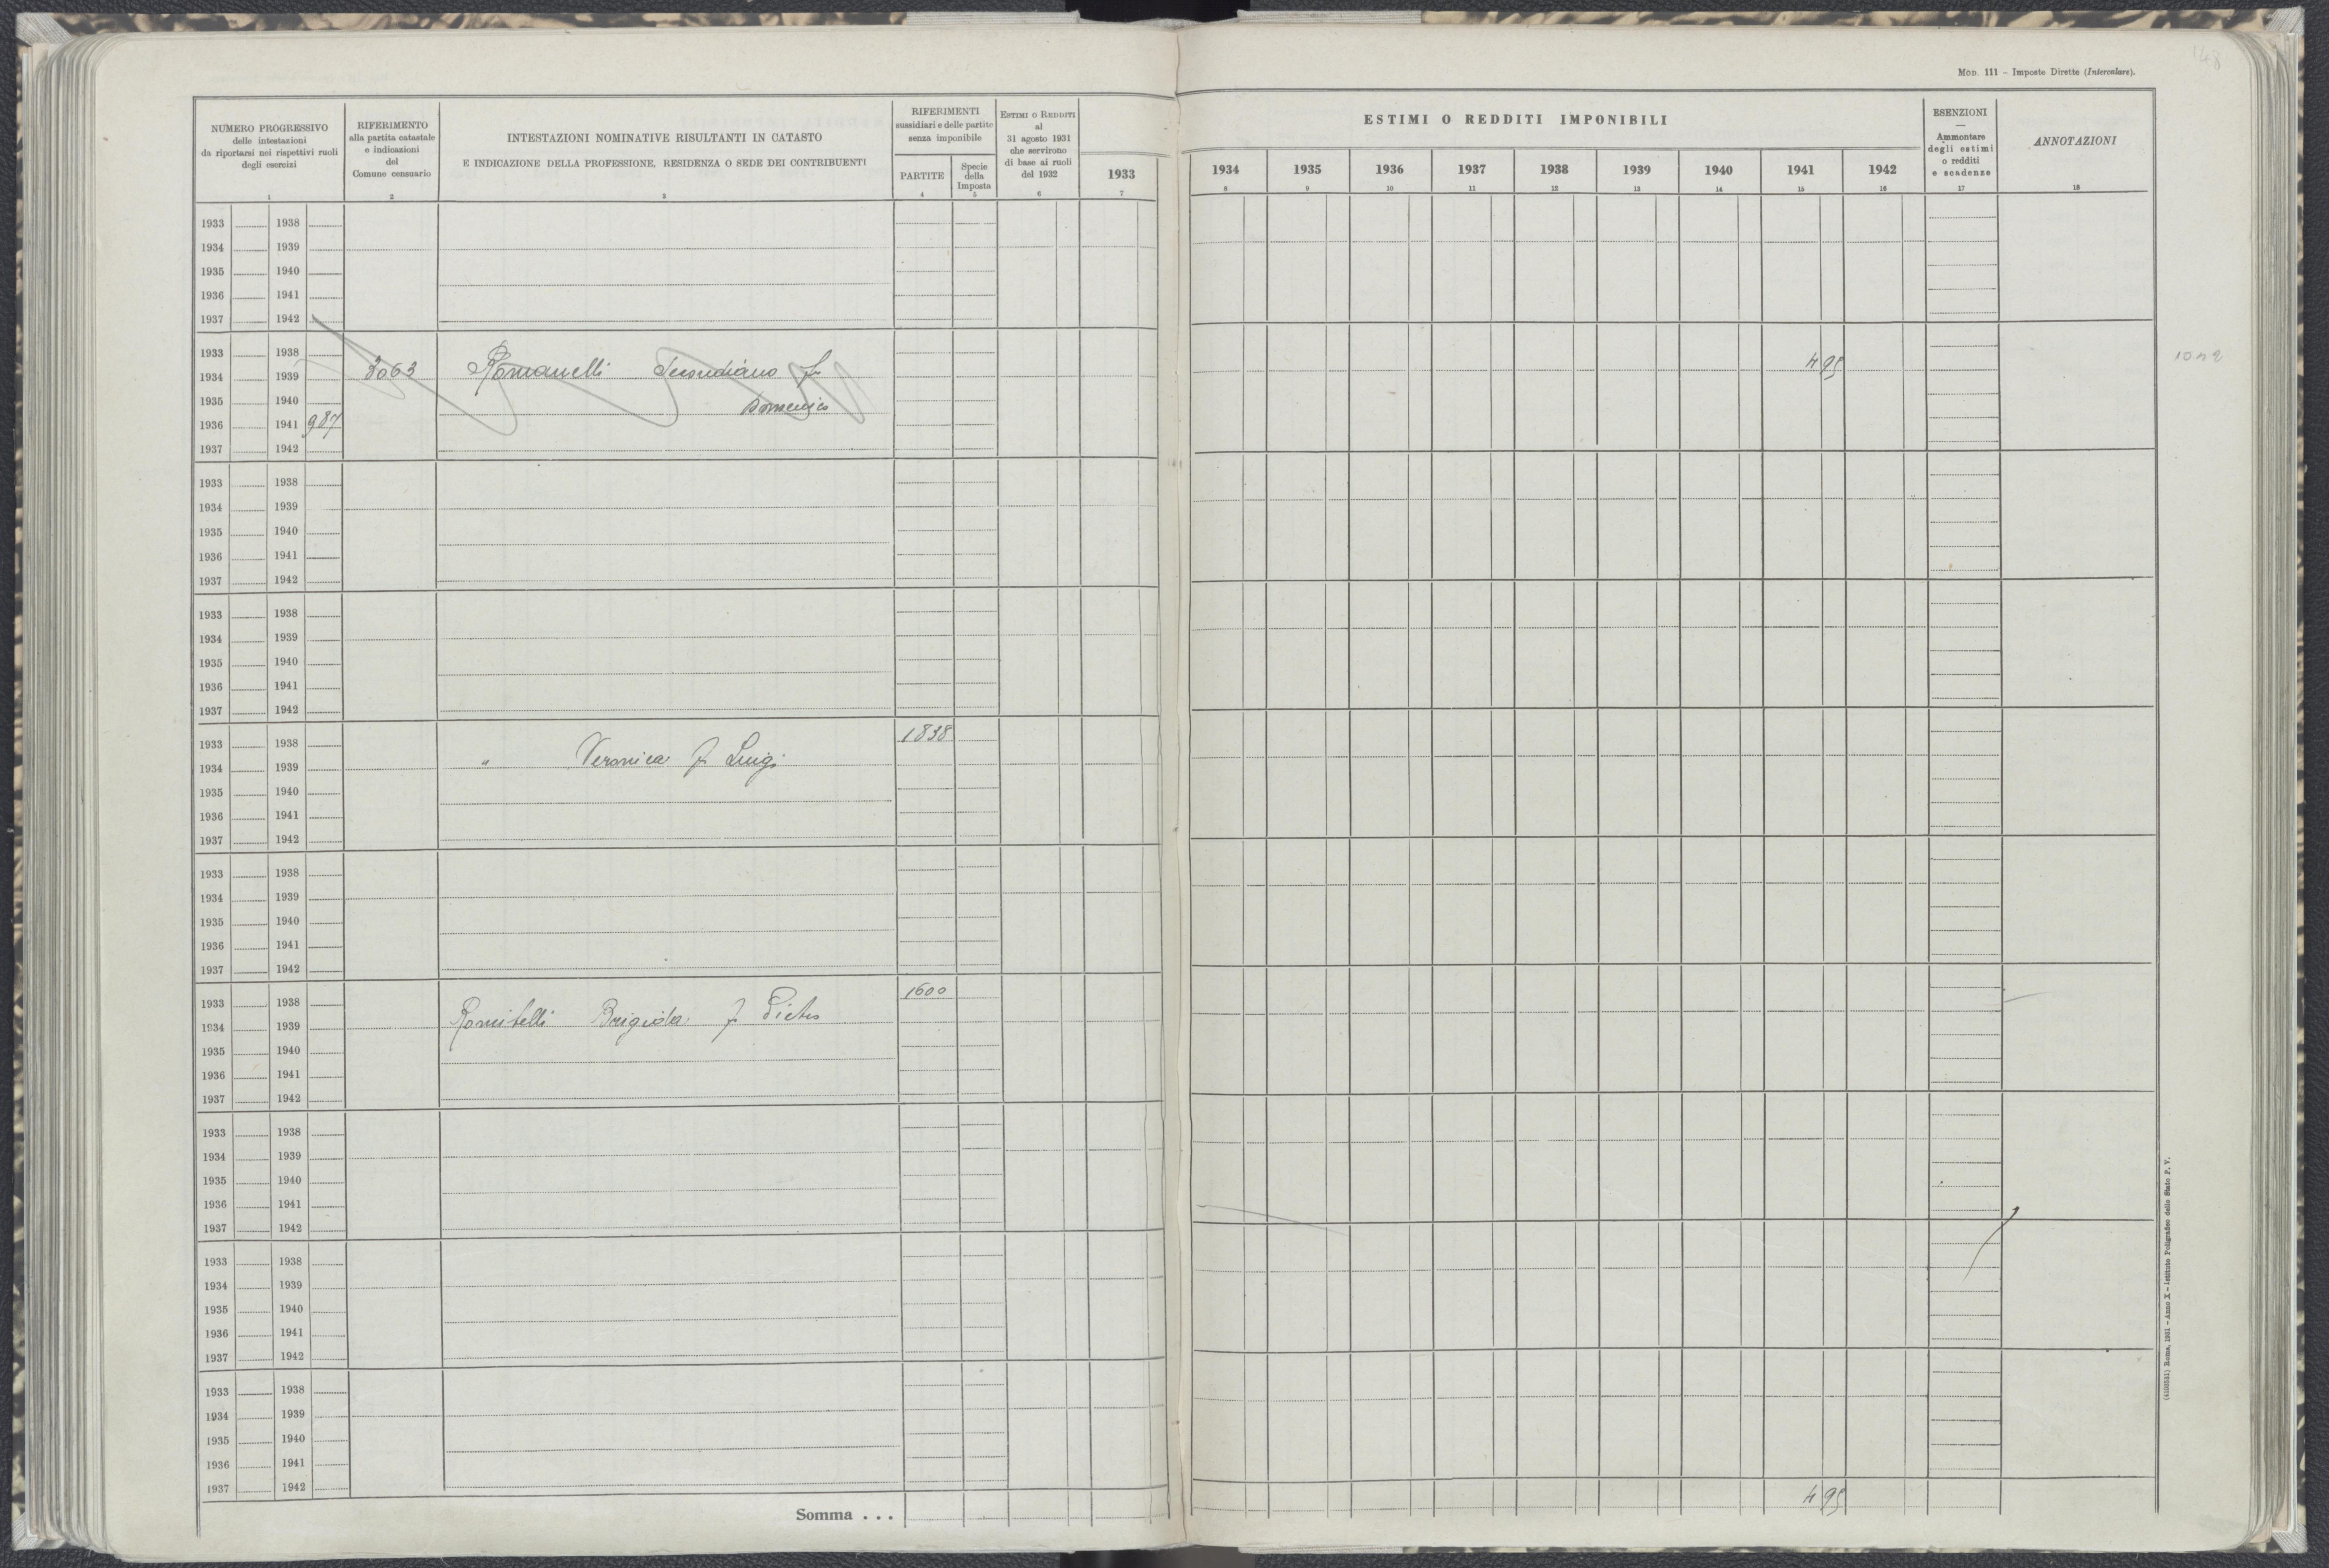 148
MOD. 111 – Imposte Dirette (Intercalare).
NUMERO PROGRESSIVO
delle intestazioni
da riportarsi nei rispettivi ruoli
degli esercizi
1
RIFERIMENTO
alla partita catastale
e indicazioni
del
Comune censuario
2
INTESTAZIONI NOMINATIVE RISULTANTI IN CATASTO
E INDICAZIONE DELLA PROFESSIONE, RESIDENZA O SEDE DEI CONTRIBUENTI
3
RIFERIMENTI
sussidiari e delle partite
senza imponibile
PARTITE
4
Specie
della
Imposta
5
ESTIMI O REDDITI
al
31 agosto 1931
che servirono
di base ai ruoli
del 1932
6
1933
7
ESTIMI O REDDITI IMPONIBILI
1934 1935 1936 1937 1938 1939 1940 1941 1942
8 9 10 11 12 13 14 15 16
ESENZIONI
—
Ammontare
degli estimi
o redditi
e scadenze
17
ANNOTAZIONI
18
1933 1938
1934 1939
1935 1940
1936 1941
1937 1942
1933 1938
1934 1939 3063 Romanelli Secondiano fu 495
1935 1940 Domenico
1936 1941 987
1937 1942
1933 1938
1934 1939
1935 1940
1936 1941
1937 1942
1933 1938
1934 1939
1935 1940
1936 1941
1937 1942
1933 1938 1838
1934 1939 " Veronica f Luigi
1935 1940
1936 1941
1937 1942
1933 1938
1934 1939
1935 1940
1936 1941
1937 1942
1933 1938 1600
1934 1939 Romitelli Brigida f Pietro
1935 1940
1936 1941
1937 1942
1933 1938
1934 1939
1935 1940
1936 1941
1937 1942
1933 1938
1934 1939
1935 1940
1936 1941
1937 1942
1933 1938
1934 1939
1935 1940
1936 1941
1937 1942
Somma . . . 495
(4103531) Roma, 1931 – Anno X – Istituto Poligrafico dello Stato P. V.